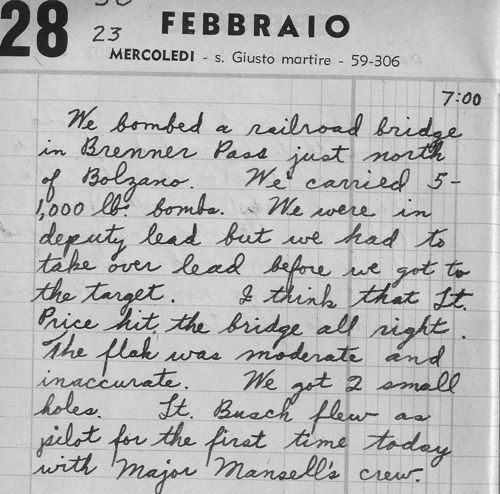 28 FEBBRAIO
23
MERCOLEDI - s. Giusto martire - 59-306
7:00
We bombed a railroad bridge
in Brenner Pass just north
of Bolzano. We carried 5-
1,000 lb. bombs. We were in
deputy lead but we had to
take over lead before we got to
the target. I think that Lt.
Price hit the bridge all right.
The flak was moderate and
inaccurate. We got 2 small
holes. Lt. Busch flew as
pilot for the first time today
with Major Mansell's crew.